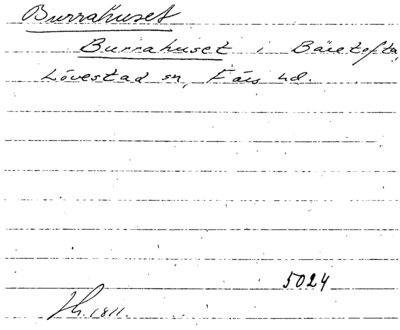 Burrahuset
Burrahuset i Bäretofta,
Lövestad sn, Färs hd.
5024
Jh. 1811.